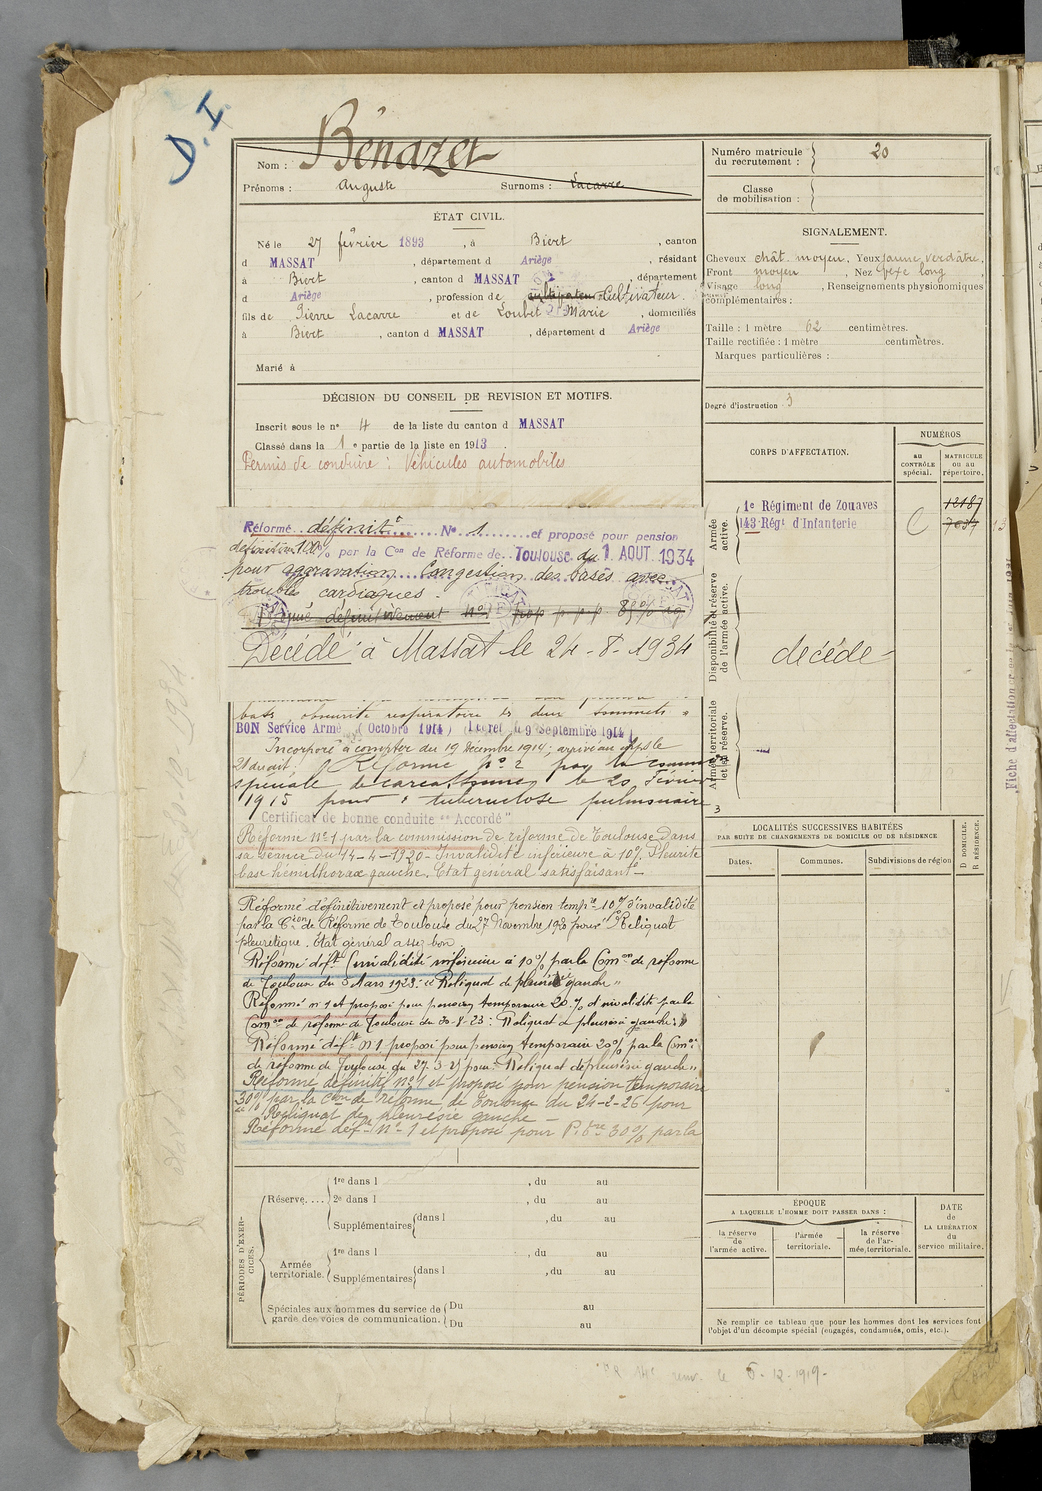 D.I
Nom : Bénazet
Prénoms : Auguste Surnoms : Lacarre
ÉTAT CIVIL.
Né le 27 février 1893, à Biert, canton
d MASSAT, département d Ariège, résidant
à Biert, canton d MASSAT, département
d Ariège, profession de cultivateur Cultivateur
fils de Pierre Lacarre et de Loubet Marie, domiciliés
à Biert, canton d MASSAT, département d Ariège
Marié à
DÉCISION DU CONSEIL DE REVISION ET MOTIFS.
Inscrit sous le n° 4 de la liste du canton d MASSAT
Classé dans la 1e partie de la liste en 1913.
Permis de conduire : Véhicules automobiles
Réformé définitt N° 1 et proposé pour pension
définitive 100% par la Con de Réforme de Toulouse du 1 AOUT 1934
pour aggravation Congestion des bases avec
troubles cardiaques.
définitivement n° 1 prop p p p 85%
Décédé à Massat le 24-8-1934
obscurité respiratoire des deux sommets
BON Service Armé (Octobre 1914) 9 Septembre 1914
Incorporé à compter du 19 décembre 1914, arrivé au corps le
21 dudit. Réformé n° 2 par la comm
spéciale de Carcassonne le 20 Février
1915 pour : tuberculose pulmonaire
Certificat de bonne conduite "Accordé"
Réformé N° 1 par la commission de réforme de Toulouse dans
sa séance du 14-4-1920 - Invalidité inférieure à 10% Pleurite
base hémithorax gauche. Etat général satisfaisant -
Réformé définitivement et proposé pour pension tempre 10% d'invalidité
par la Cion de Réforme de Toulouse du 27 Novembre 1920 pour Reliquat
pleurétique. Etat général assez bon
Réformé deft invalidité inférieure à 10% par la Comon de réforme
de Toulouse du 5 Mars 1923. "Reliquat de pleurésie gauche"
Réformé n° 1 et proposé pour pension temporaire 20% d'invalidité par la
Comon de réforme de Toulouse du 30-8-23 : Reliquat de pleurésie gauche
Réformé deft n° 1 proposé pour pension temporaire 20% par la Com
de réforme de Toulouse du 27.3.25 pour : Reliquat de pleurésie gauche"
Réformé définitif n° 1 et proposé pour pension temporaire
30% par la Con de réforme de Toulouse du 24-2-26 pour
"Reliquat de pleurésie gauche"
Réformé deft n° 1 et proposé pour P. tre 30% par la
PÉRIODES D'EXERCICES.
Réserve.... 1re dans l , du au
2e dans l , du au
Supplémentaires dans l , du au
, du au
Armée territoriale. 1re dans l , du au
Supplémentaires dans l , du au
Spéciales aux hommes du service de garde des voies de communication. Du au
Du au
Numéro matricule du recrutement : 20
Classe de mobilisation :
SIGNALEMENT.
Cheveux chât. moyen, Yeux jaune verdâtre,
Front moyen, Nez long,
Visage long, Renseignements physionomiques
complémentaires :
Taille : 1 mètre 62 centimètres.
Taille rectifiée : 1 mètre centimètres.
Marques particulières :
Degré d'instruction 3
CORPS D'AFFECTATION.
NUMÉROS
au CONTRÔLE spécial.
MATRICULE ou au répertoire.
Armée active.
1e Régiment de Zouaves 12187
143 Régt d'Infanterie
Disponibilité et réserve de l'armée active.
décédé
Armée territoriale et sa réserve.
LOCALITÉS SUCCESSIVES HABITÉES
PAR SUITE DE CHANGEMENTS DE DOMICILE OU DE RÉSIDENCE
Dates.
Communes.
Subdivisions de région
D DOMICILE.
R RÉSIDENCE.
ÉPOQUE
A LAQUELLE L'HOMME DOIT PASSER DANS :
la réserve de l'armée active.
l'armée territoriale.
la réserve de l'armée territoriale.
DATE de LA LIBÉRATION du service militaire.
Ne remplir ce tableau que pour les hommes dont les services font
l'objet d'un décompte spécial (engagés, condamnés, omis, etc.).
renv. le 6-12-1919-